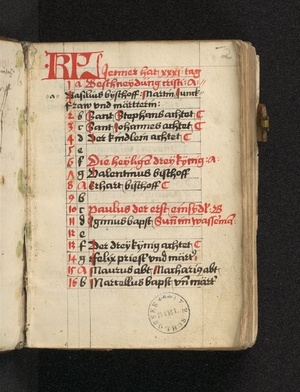 KL Jenner hat xxxi tag
1 a Beschneydung cristi: A:
Basilius bischoff Martin Junck
fraw vnd martrerin:
2 b Sant Stephans achtet C
3 c Sant Johannes achtet C
4 d Der kindlein achtet C
5 e
6 f Die heyligen drey kynig: A:
7 g Valentinus bischoff
8 A Erhart bischoff C
9 b
10 c Paulus der erst einsydl: B
11 d Iginus bapst Sun im wasserma:
12 e
13 f Der drey kynig achtet C
14 g felix priest vnd mart:
15 A Maurus abt Macharius abt
16 b Marcellus bapst vnd mart: